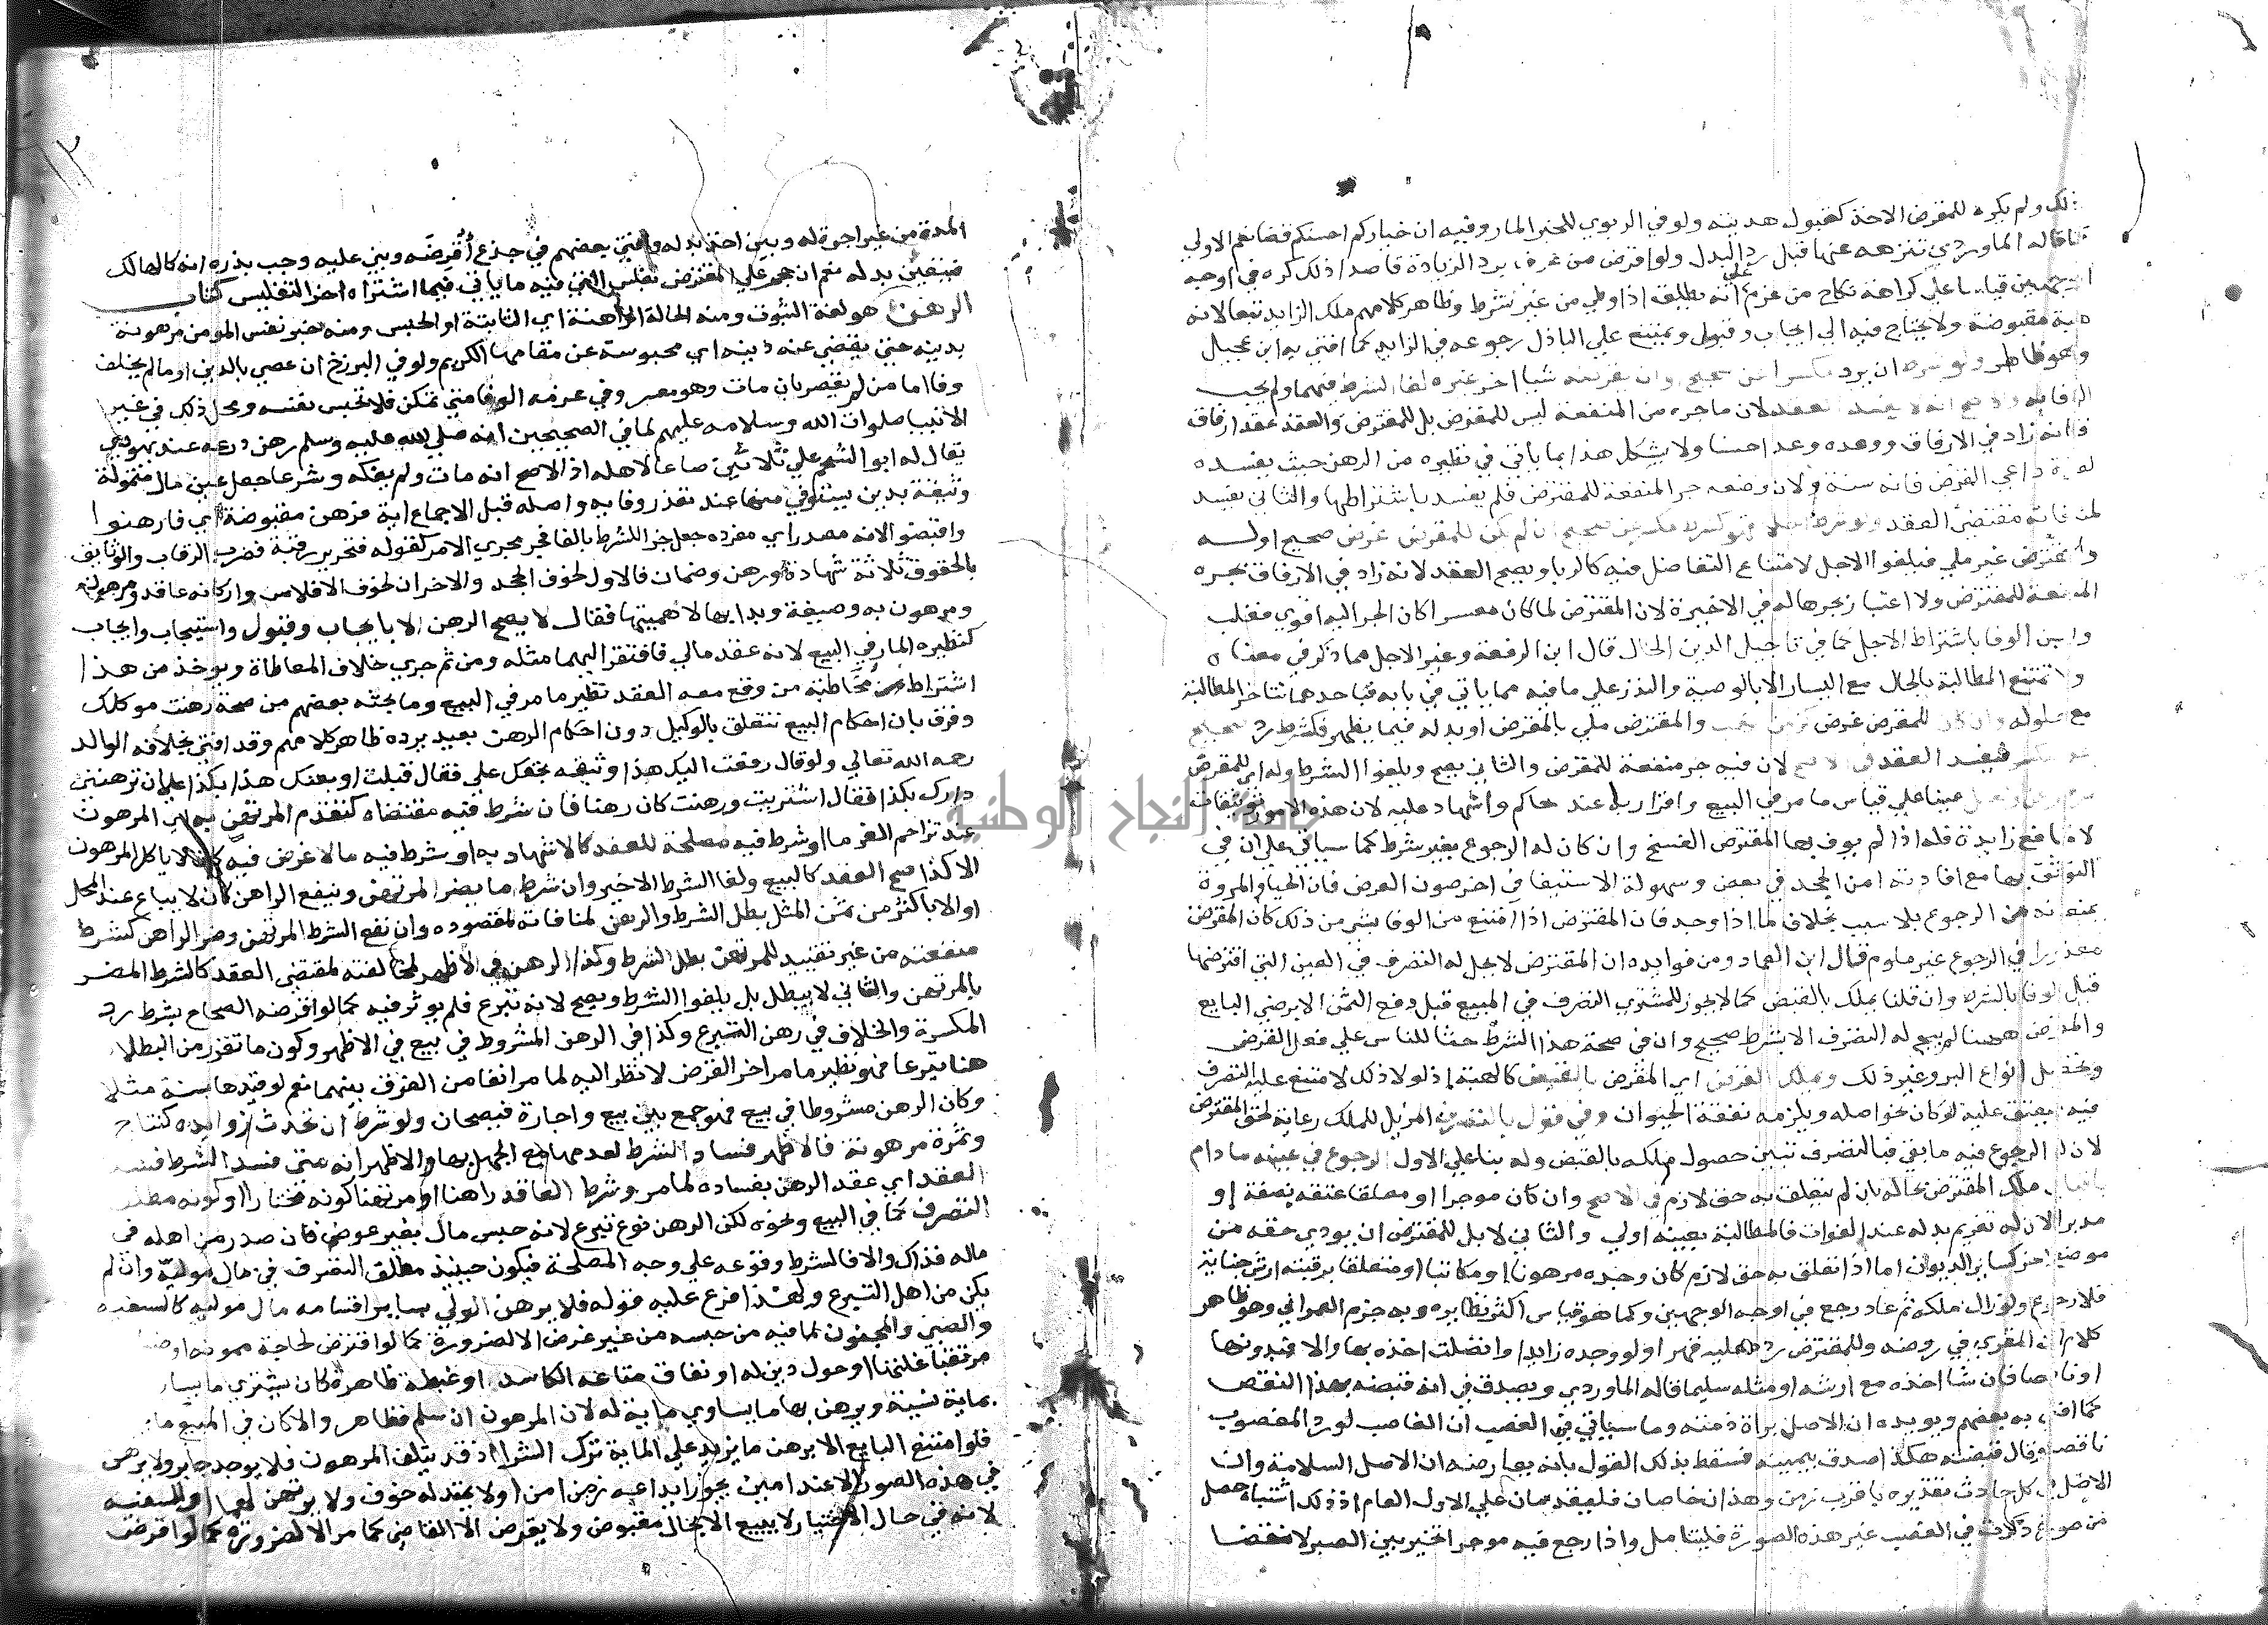 ذلك ولم يكره للمقرض الاخذ كقبول هديته ولو في الربوي للخبر المار وفيه ان خياركم احسنكم قضا نعم الاولي
كما قاله الماوردي تنزهه عنها قبل رد البدل ولو اقرض من عرف برد الزيادة قاصدا ذلك كره في اوجه
قياسا علي كراهة نكاح من عزم علي انه يطلق اذا وطي من غير شرط وظاهر كلامهم ملك الزايد تبعا لانه
هبة مقبوضة ولا يحتاج فيه الي ايجاب وقبول ويمتنع علي الباذل رجوعه في الزايد كما افتي به ابن عجيل
وهو ظاهر ولو شرط ان يرد مكسرا عن صحيح وان يقرضه شيا اخر غيره لغا الشرط فيهما ولم يجب
الوفا به والاصح انه لا يفسد العقد لان ما جره من المنفعة ليس للمقرض بل للمقترض والعقد عقد ارفاق
فانه زاد في الارفاق ووعده وعدا حسنا ولا يشكل هذا بما ياتي في نظيره من الرهن حيث يفسده
داعي القرض فانه سنة ولان وضعه جر المنفعة للمقترض فلم يفسد باشتراطها والثاني يفسد
لمنافاته مقتضي العقد ولو شرط اجلا فهو كشرط مكسر عن صحيح ان لم يكن للمقرض غرض صحيح اوله
والمقترض غير ملي فيلغوا الاجل لامتناع التفاضل فيه كالربا ويصح العقد لانه زاد في الارفاق بجره
المنفعة للمقترض ولا اعتبار بجرها له في الاخيرة لان المقترض لما كان معسرا كان الجر اليه اقوي فغلب
الوفا باشتراط الاجل كما في تاجيل الدين الحال قال ابن الرفعة وغير الاجل مما ذكر في معناه
ولا تمتنع المطالبة بالحال مع اليسار الا بالوصية والنذر علي ما فيه مما ياتي في بابه فباحدهما تتاخر المطالبة
مع حلوله وان كان للمقرض غرض كزمن نهب والمقترض ملي بالمقرض او بدله فيما يظهر فكشرط رد صحيح
عن مكسر فيفسد العقد في الاصح لان فيه جر منفعة للمقرض والثاني يصح ويلغوا الشرط وله اي للمقرض
شرط رهن وكفيل عينا علي قياس ما مر في البيع واقرار به عند حاكم واشهاد عليه لان هذه الامور توثيقات
لا منافع زايدة فله اذا لم يوف بها المقترض الفسخ وان كان له الرجوع بغير شرط كما سياتي علي ان في
التوثق بها مع افادته امن الجحد في بعض وسهولة الاستيفا في اخر صون العرض فان الحيا والمروة
يمنعانه من الرجوع بلا سبب بخلاف ما اذا وجد فان المقترض اذا امتنع من الوفا بشي من ذلك كان المقرض
معذورا في الرجوع غير ملوم قال ابن العماد ومن فوايده ان المقترض لا يحل له التصرف في العين التي اقترضها
قبل الوفا بالشرط وان قلنا يملك بالقبض كما لا يجوز للمشتري التصرف في المبيع قبل دفع الثمن الا برضي البايع
والمقرض هنا لم يبح له التصرف الا بشرط صحيح وان في صحة هذا الشرط حثا للناس علي فعل القرض
وتحصيل انواع البر وغير ذلك ويملك القرض اي المقرض بالقبض كالهبة اذ لو لا ذلك لامتنع عليه التصرف
فيه فيعتق عليه لو كان نحو اصله ويلزمه نفقة الحيوان وفي قول بالتصرف المزيل للملك رعاية لحق المقرض
لان له الرجوع فيه ما بقي فبالتصرف تبين حصول ملكه بالقبض وله بنا علي الاول الرجوع في عينه ما دام
باقيا في ملك المقترض بحاله بان لم يتعلق به حق لازم في الاصح وان كان موجرا او معلقا عتقه بصفة او
مدبرا لان له تغريم بدله عند الفوات فالمطالبة بعينه اولي والثاني لا بل للمقترض ان يودي حقه من
موضع اخر كساير الديون اما اذا تعلق به حق لازم كان وجده مرهونا او مكاتبا او متعلقا برقبته ارش جناية
فلا رجوع ولو زال ملكه ثم عاد رجع في اوجه الوجهين وكما هو قياس اكثر نظايره وبه جزم العمراني وهو ظاهر
كلام ابن المقري في روضه وللمقترض رده عليه قهرا ولو وجده زايدا وانفصلت اخذه بها والا فبدونها
او ناقصا فان شا اخذه مع ارشه او مثله سليما قاله الماوردي ويصدق في انه قبضه بهذا النقص
كما افتي به بعضهم ويويده ان الاصل براة ذمته وما سياتي في الغصب ان الغاصب لو رد المغصوب
ناقصا وقال قبضته هكذا صدق بيمينه فسقط بذلك القول بانه يعارضه ان الاصل السلامة وان
الاصل في كل حادث تقديره باقرب زمن وهذان خاصان فليقدمان علي الاول العام اذ ذلك اشتباه حصل
من صورة ذكرت في الغصب غير هذه الصورة فليتامل واذا رجع فيه موجرا تخير بين الصبر لانقضا
المدة من غير اجرة له وبين اخذ بدله وافتي بعضهم في جذع اُقرِضَه وبني عليه وجب بذره انه كالهالك
فيتعين بدله نعم ان حجر علي المقترض بفلس اتي فيه ما ياتي فيما اشتراه اخر التفليس كتاب
الرهن هو لغة الثبوت ومنه الحالة الراهنة اي الثابتة او الحبس ومنه خبر نفس المومن مرهونة
بدينه حتي يقضي عنه دينه اي محبوسة عن مقامها الكريم ولو في البرزخ ان عصي بالدين او ما لم يخلف
وفا اما من لم يقصر بان مات وهو معسر وفي عزمه الوفا متي تمكن فلا تحبس نفسه ومحل ذلك في غير
الانبيا صلوات الله وسلامه عليهم لما في الصحيحين انه صلي الله عليه وسلم رهن درعه عند يهودي
يقال له ابو الشحم علي ثلاثين صاعا لاهله اذ الاصح انه مات ولم يفكه وشرعا جعل عين مال متمولة
وثيقة بدين يستوفي منها عند تعذر وفايه واصله قبل الاجماع اية فرهن مقبوضة اي فارهنوا
واقبضوا لانه مصدر اي مفرده جعل جزا للشرط بالفا فجري مجري الامر كقوله فتحرير رقبة فضرب الرقاب والوثايق
بالحقوق ثلاثة شهادة ورهن وضمان فالاول لخوف الجحد والاخران لخوف الافلاس واركانه عاقد ومرهون
ومرهون به وصيغة وبدا بها لاهميتها فقال لا يصح الرهن الا بايجاب وقبول واستيجاب وايجاب
كنظيره المار في البيع لانه عقد مالي فافتقر اليهما مثله ومن ثم جري خلاف المعاطاة ويوخذ من هذا
اشتراط مخاطبة من وقع معه العقد نظير ما مر في البيع وما بحثه بعضهم من صحة رهنت موكلك
وفرق بان احكام البيع تتعلق بالوكيل دون احكام الرهن بعيد يرده ظاهر كلامهم وقد افتي بخلافه الوالد
رحمه الله تعالي ولو قال دفعت اليك هذا وثيقة بحقك علي فقال قبلت او بعتك هذا بكذا علي ان ترهنني
دارك بكذا فقال اشتريت ورهنت كان رهنا فان شرط فيه مقتضاه كتقدم المرتهن به اي المرهون
عند تزاحم الغرما او شرط فيه مصلحة للعقد كالاشهاد به او شرط فيه ما لا غرض فيه كان لا ياكل المرهون
الا كذا صح العقد كالبيع ولغا الشرط الاخير وان شرط ما يضر المرتهن وينفع الراهن كان لا يباع عند المحل
او الا باكثر من ثمن المثل بطل الشرط والرهن لمنافاته لمقصوده وان نفع الشرط المرتهن وضر الراهن كشرط
منفعته من غير تقييد للمرتهن بطل الشرط وكذا الرهن في الاظهر لمخالفته لمقتضي العقد كالشرط المضر
بالمرتهن والثاني لا يبطل بل يلغوا الشرط ويصح لانه تبرع فلم يوثر فيه كما لو اقرضه الصحاح بشرط رد
المكسرة والخلاف في رهن التبرع وكذا في الرهن المشروط في بيع في الاظهر وكون ما تقرر من البطلان
هنا تبرعا فهو نظير ما مر اخر القرض لا نظر اليه لما مر انفا من الفرق بينهما نعم لو قيدها بسنة مثلا
وكان الرهن مشروطا في بيع فهو جمع بين بيع واجارة فيصحان ولو شرط ان تحدث زوايده كنتاج
وثمرة مرهونة فالاظهر فساد الشرط لعدمها مع الجهل بها والاظهر انه متي فسد الشرط فسد
العقد اي عقد الرهن بفساده لما مر وشرط العاقد راهنا او مرتهنا كونه مختارا او كونه مطلق
التصرف كما في البيع ونحوه لكن الرهن نوع تبرع لانه حبس مال بغير عوض فان صدر من اهله في
ماله فذاك والا فالشرط وقوعه علي وجه المصلحة فيكون حينيذ مطلق التصرف في مال موليه وان لم
يكن من اهل التبرع ولهذا فرع عليه قوله فلا يرهن الولي بساير اقسامه مال موليه كالسفيه
والصبي والمجنون لما فيه من حبسه من غير عوض الا لضرورة كما لو اقترض لحاجة ممونه او
مرتقبا غلتها او حلول دين له او نفاق متاعه الكاسد او غبطة ظاهرة كان يشتري ما يساوي
بماية نسية ويرهن بها ما يساوي ماية له لان المرهون ان سلم فظاهر والا كان في المبيع
فلو امتنع البايع الا برهن ما يزيد علي الماية ترك الشرا اذ قد يتلف المرهون فلا يوجد جابر ولا يرهن
في هذه الصور الا عند امين يجوز ايداعه زمن امن او لا يمتد له خوف ولا يرتهن لهما او للسفيه
لانه في حال الاختيار لا يبيع الا بحال مقبوض ولا يقرض الا القاضي كما مر الا لضرورة كما لو اقرض
جامعة النجاح الوطنية